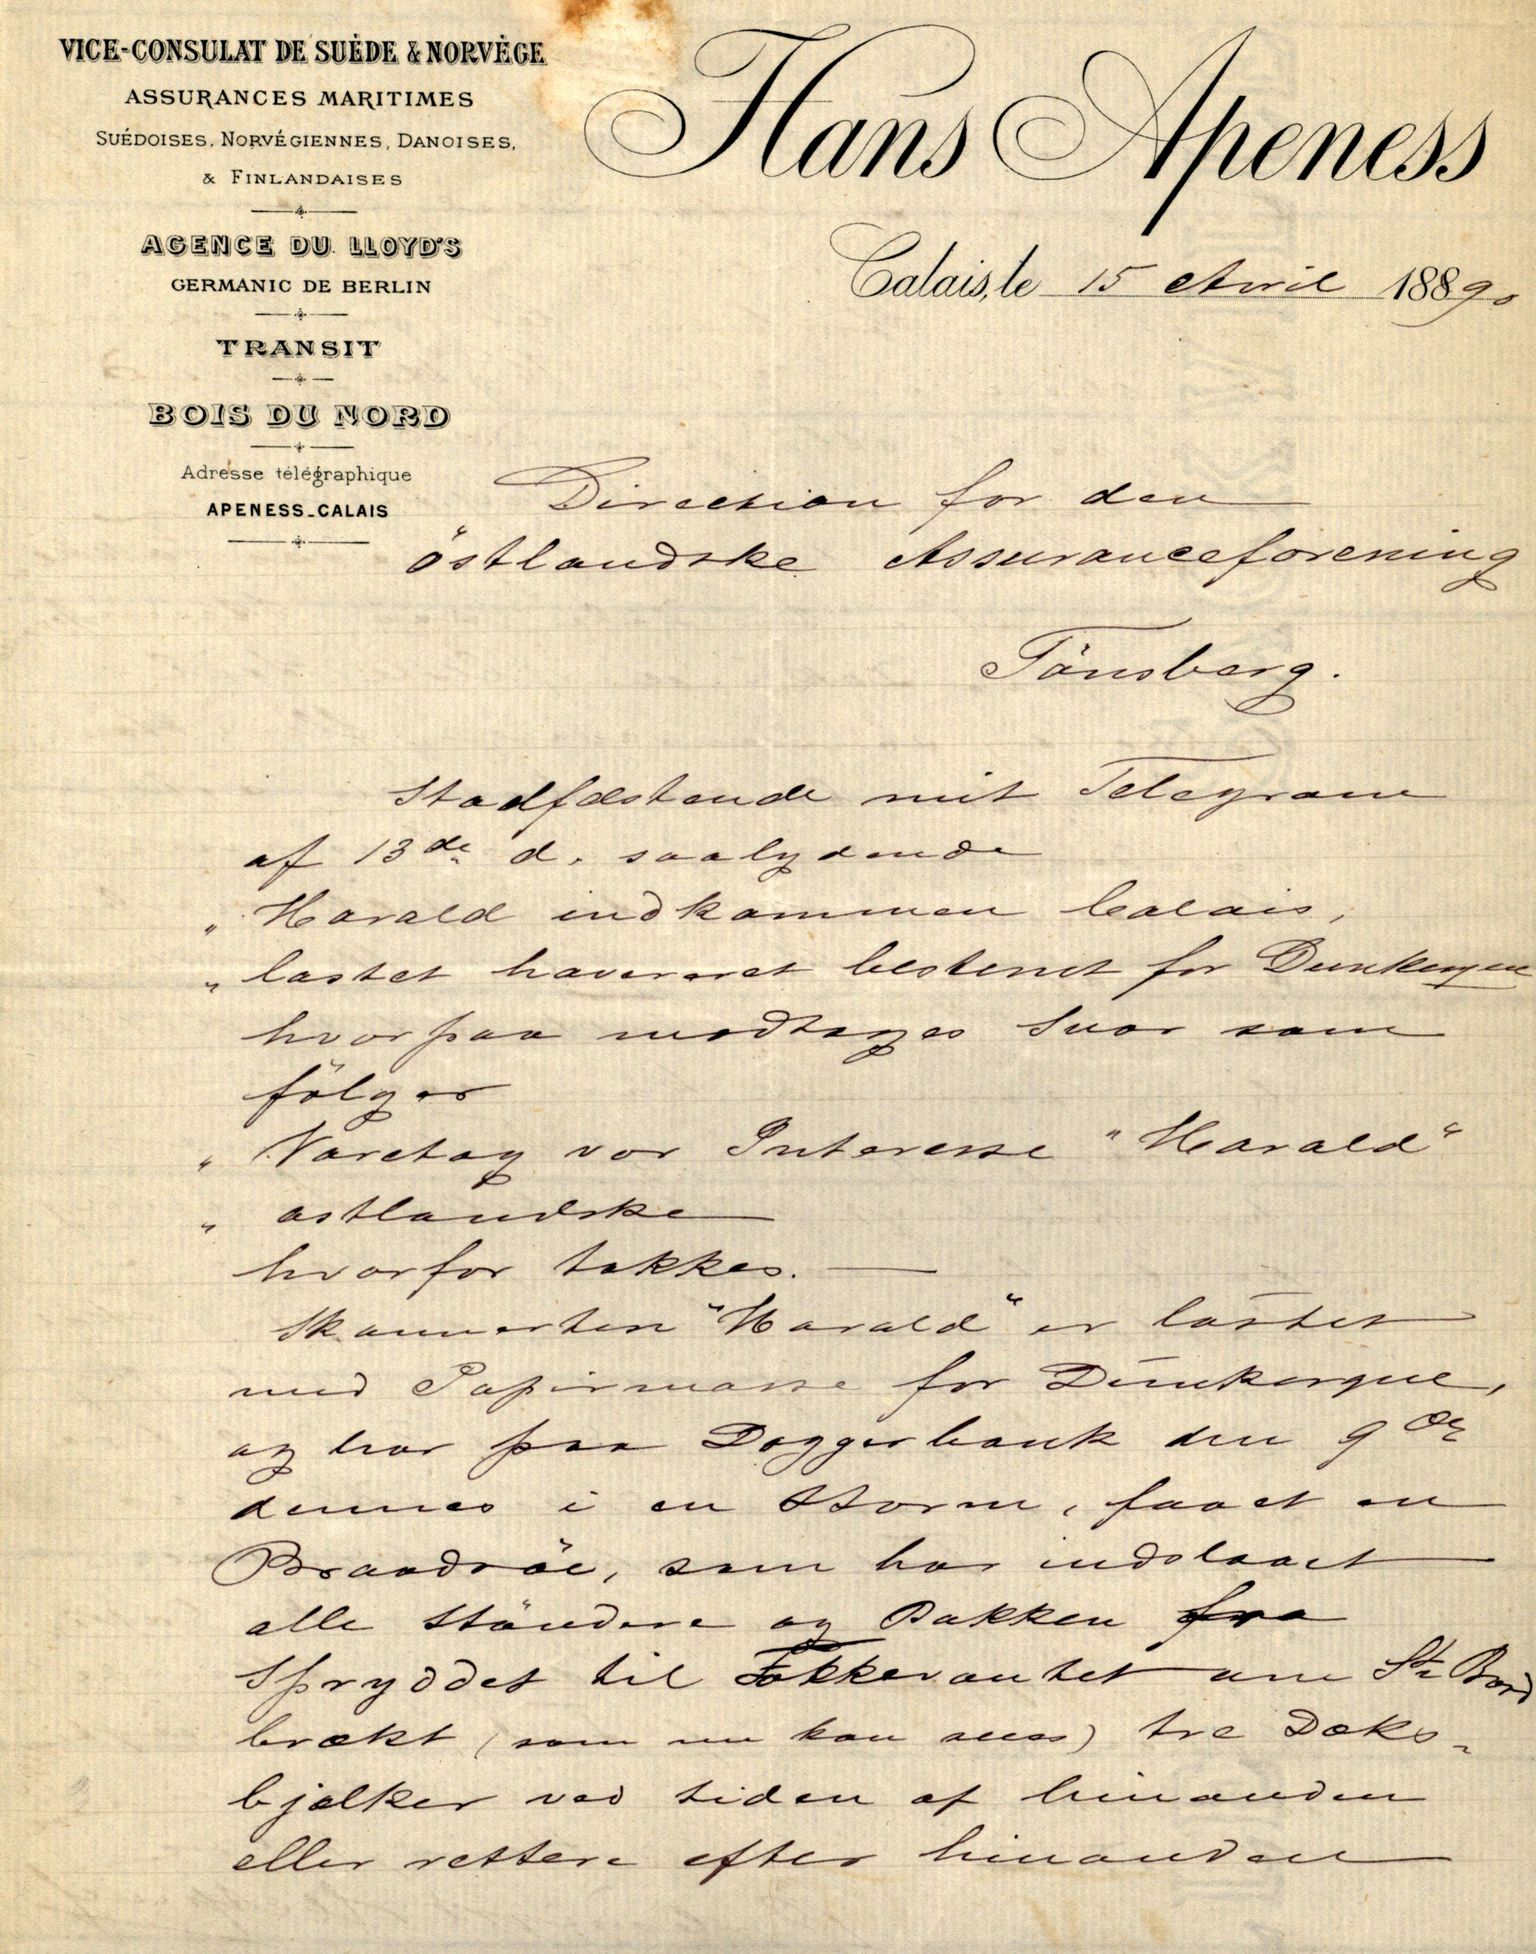 VICE-CONSULAT DE SUÉDE & NORVÉGE
ASSURANCES MARITIMES
SUÉDOISES, NORVÉGIENNES, DANOISES,
& FINLANDAISES
AGENCE DU LLOYD'S
GERMANIC DE BERLIN
TRANSIT
BOIS DU NORD
Adresse télégraphique
APENESS_CALAIS
Hans Apeness
Calais, le 15 Avril 1889
Direction for den
östlandske Assuranceforening
Tönsberg.
Stadfæstende mit Telegram
af 13de d. saalydende
„ Harald indkommen Calais,
„ lastet havereret bestemt for Dunkerque
hvorpaa modtages Svar som
fölger
„ Varetag vor Interesse "Harald"
„ ostlandske
hvorfor takkes.
Skonnerten "Harald" er lastet
med Papirmasse for Dunkerque,
og har paa Doggerbank den 9de
dennes i en Storm, faaet en
Braadsöe, som har indslaaet
alle Stöndere og Bakken fra
Spryddet til Fokkevantet om St. Bord
brækt (som nu kan sees) tre Dæks-
bjælker ved Siden af hinanden
eller rettere efter hinanden